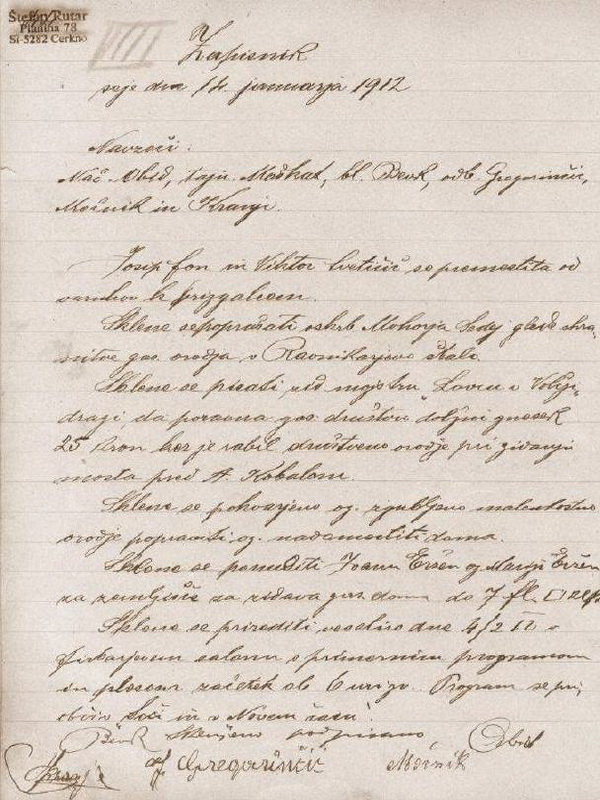 Štefan Rutar
Planina 78
SI-5282 Cerkno
VIII
Zapisnik
seje dne 14. januarja 1912
Navzoči:
Nač. Obid, tajn. Močkat, bl. Bevk, odb. Gregorinčič,
Močnik in Kranj.
Josip fon in Viktor Cvetičič se premestita od
k brizgalcem.
Sklene se poprašati oskrb Mohorja Sedej glede shra-
nitve gas. orodja v Ravnikarjevo štalo.
Sklene se pisati zid. mojstru Lovcu v Volji-
dragi, da poravna gas. društvu dolžni znesek
25 kron ker je rabil društveno orodje pri zidanji
mosta pred A. Kobalom.
Sklene se pokvarjeno oz. zgubljeno malenkostno
orodje popraviti oz. nadomestiti doma.
Sklene se ponuditi Ivanu Eržen oz Mariji Eržen
za zemljišče za zidavo gas. doma do 7 fl. □
Sklene se prirediti veselico dne 4/2 v
salonu s primernim programom
in plesom začetek ob 6 uri zv. Program se pri-
obči v Soči in v Novem času.
Bevk Sklenjeno podpisano Obid
Gregorinčič Močnik